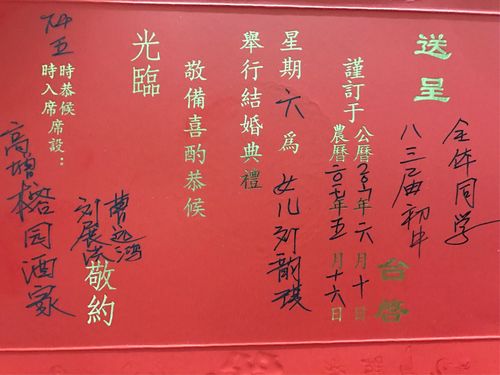 送呈
全体同学
八三届初中
台啓
謹訂于
公曆二〇一七年六月十日
農曆二〇一七年五月十六日
星期六為女儿刘韵琪
舉行結婚典禮
敬備喜酌恭候
光臨
刘展洪
敬約
下午五時恭候
時入席席設：
高增榕园酒家